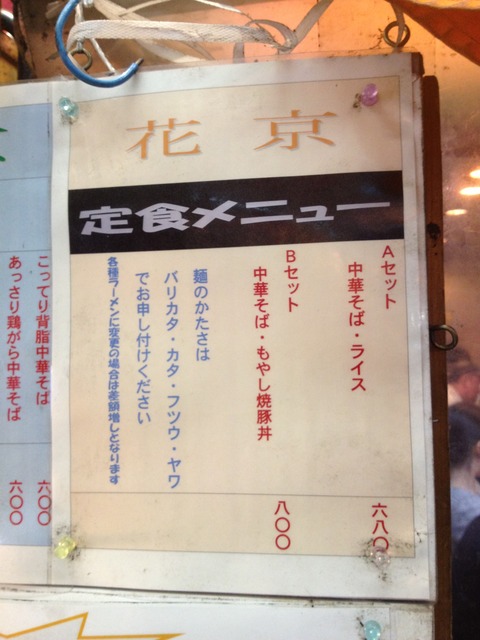 花京
定食メニュー
Aセット
中華そば・ライス
六八〇
Bセット
中華そば・もやし焼豚丼
八〇〇
麺のかたさは
バリカタ・カタ・フツウ・ヤワ
でお申し付けください
各種ラーメンに変更の場合は差額増しとなります
こってり背脂中華そば
六〇〇
あっさり鶏がら中華そば
六〇〇